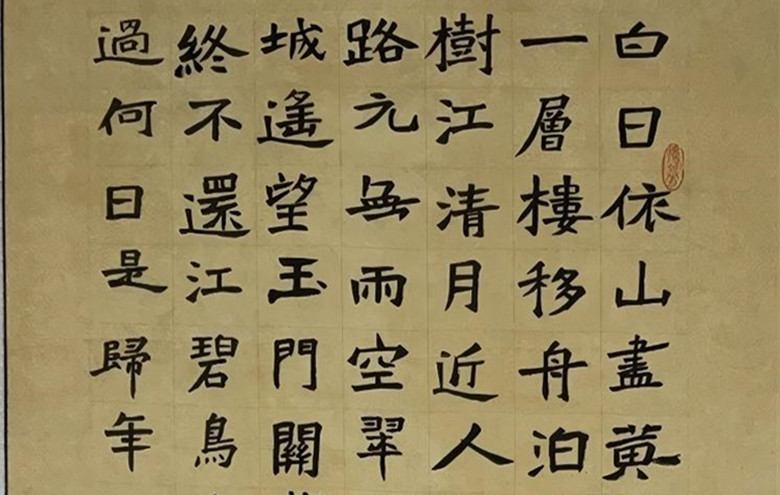 白日依山盡黄
一層樓移舟泊
樹江清月近人
路元無雨空翠
城遙望玉門關
終不還江碧鳥
過何日是歸年